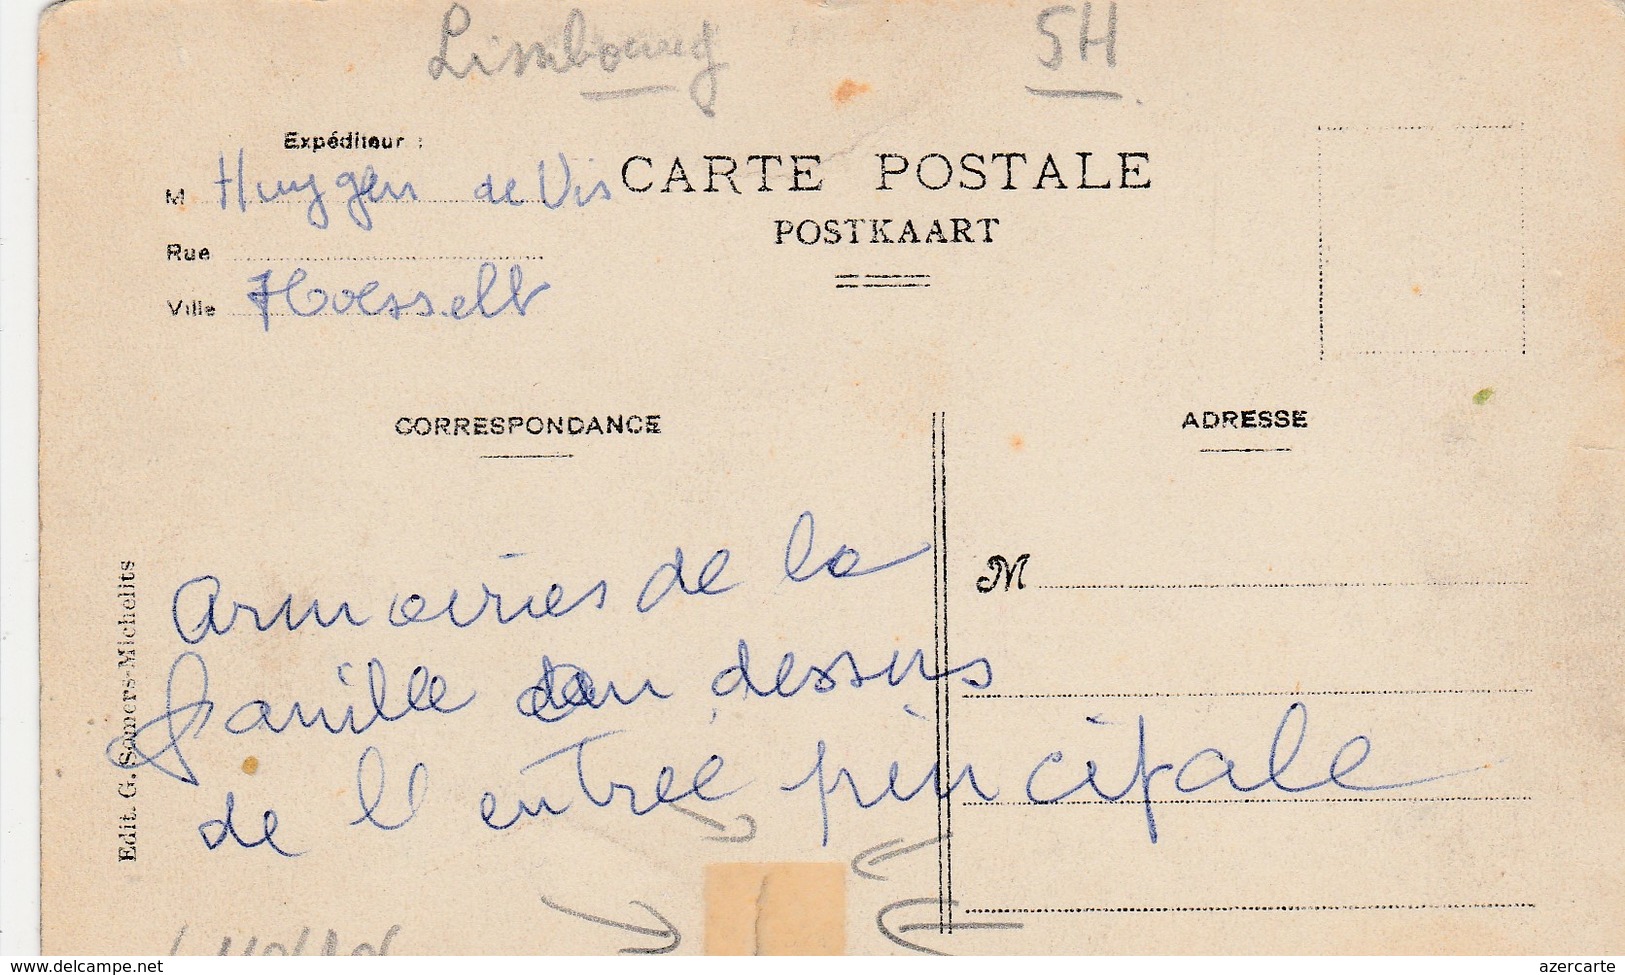 Limbourg
5H
Expéditeur :
M Huyggen de Vis
Rue
Ville Hoesselt
CARTE POSTALE
POSTKAART
CORRESPONDANCE
ADRESSE
M
Armoiries de la
famille au dessus
de l'entree principale
Edit. G. Somers-Michelits
www.delcampe.net
azercarte